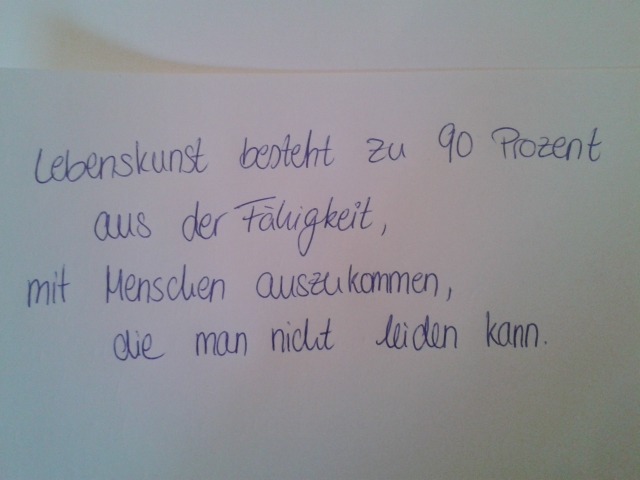 Lebenskunst besteht zu 90 Prozent
aus der Fähigkeit,
mit Menschen auszukommen,
die man nicht leiden kann.